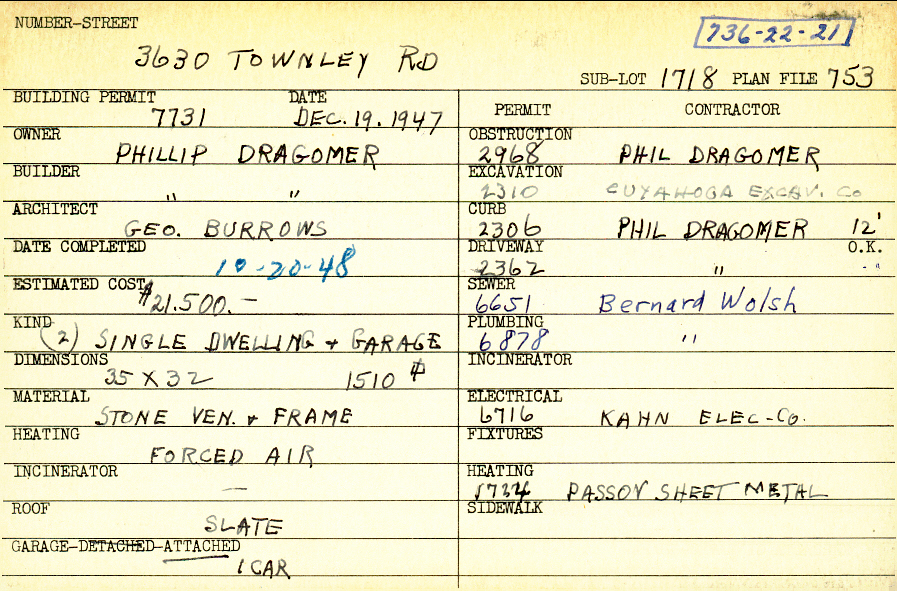 NUMBER-STREET
736-22-21
3630 TOWNLEY RD
SUB-LOT 1718 PLAN FILE 753
BUILDING PERMIT DATE
7731 DEC. 19. 1947
OWNER
PHILLIP DRAGOMER
BUILDER
" "
ARCHITECT
GEO. BURROWS
DATE COMPLETED
10-20-48
ESTIMATED COST
$21.500.—
KIND
(2) SINGLE DWELLING & GARAGE
DIMENSIONS
35 X 32 1510 ⏍
MATERIAL
STONE VEN. & FRAME
HEATING
FORCED AIR
INCINERATOR
—
ROOF
SLATE
GARAGE-DETACHED-ATTACHED
1 CAR
PERMIT CONTRACTOR
OBSTRUCTION
2968 PHIL DRAGOMER
EXCAVATION
2310 CUYAHOGA EXCAV. Co
CURB
2306 PHIL DRAGOMER 12'
DRIVEWAY O.K.
2362 " "
SEWER
6651 Bernard Wolsh
PLUMBING
6878 "
INCINERATOR
ELECTRICAL
6716 KAHN ELEC-Co.
FIXTURES
HEATING
PASSOV SHEET METAL
SIDEWALK